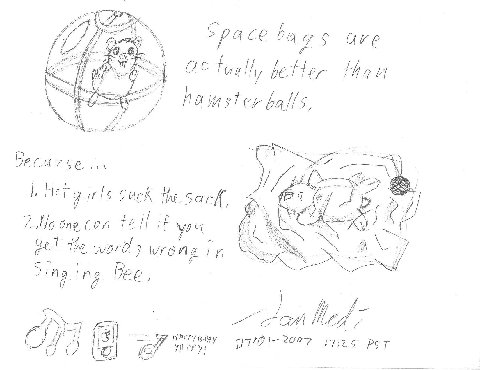 Space bags are
actually better than
hamster balls.
Because...
1. Hot girls suck the sack.
2. No one can tell if you
get the words wrong in
Singing Bee.
07/31-2007 17:25 PST